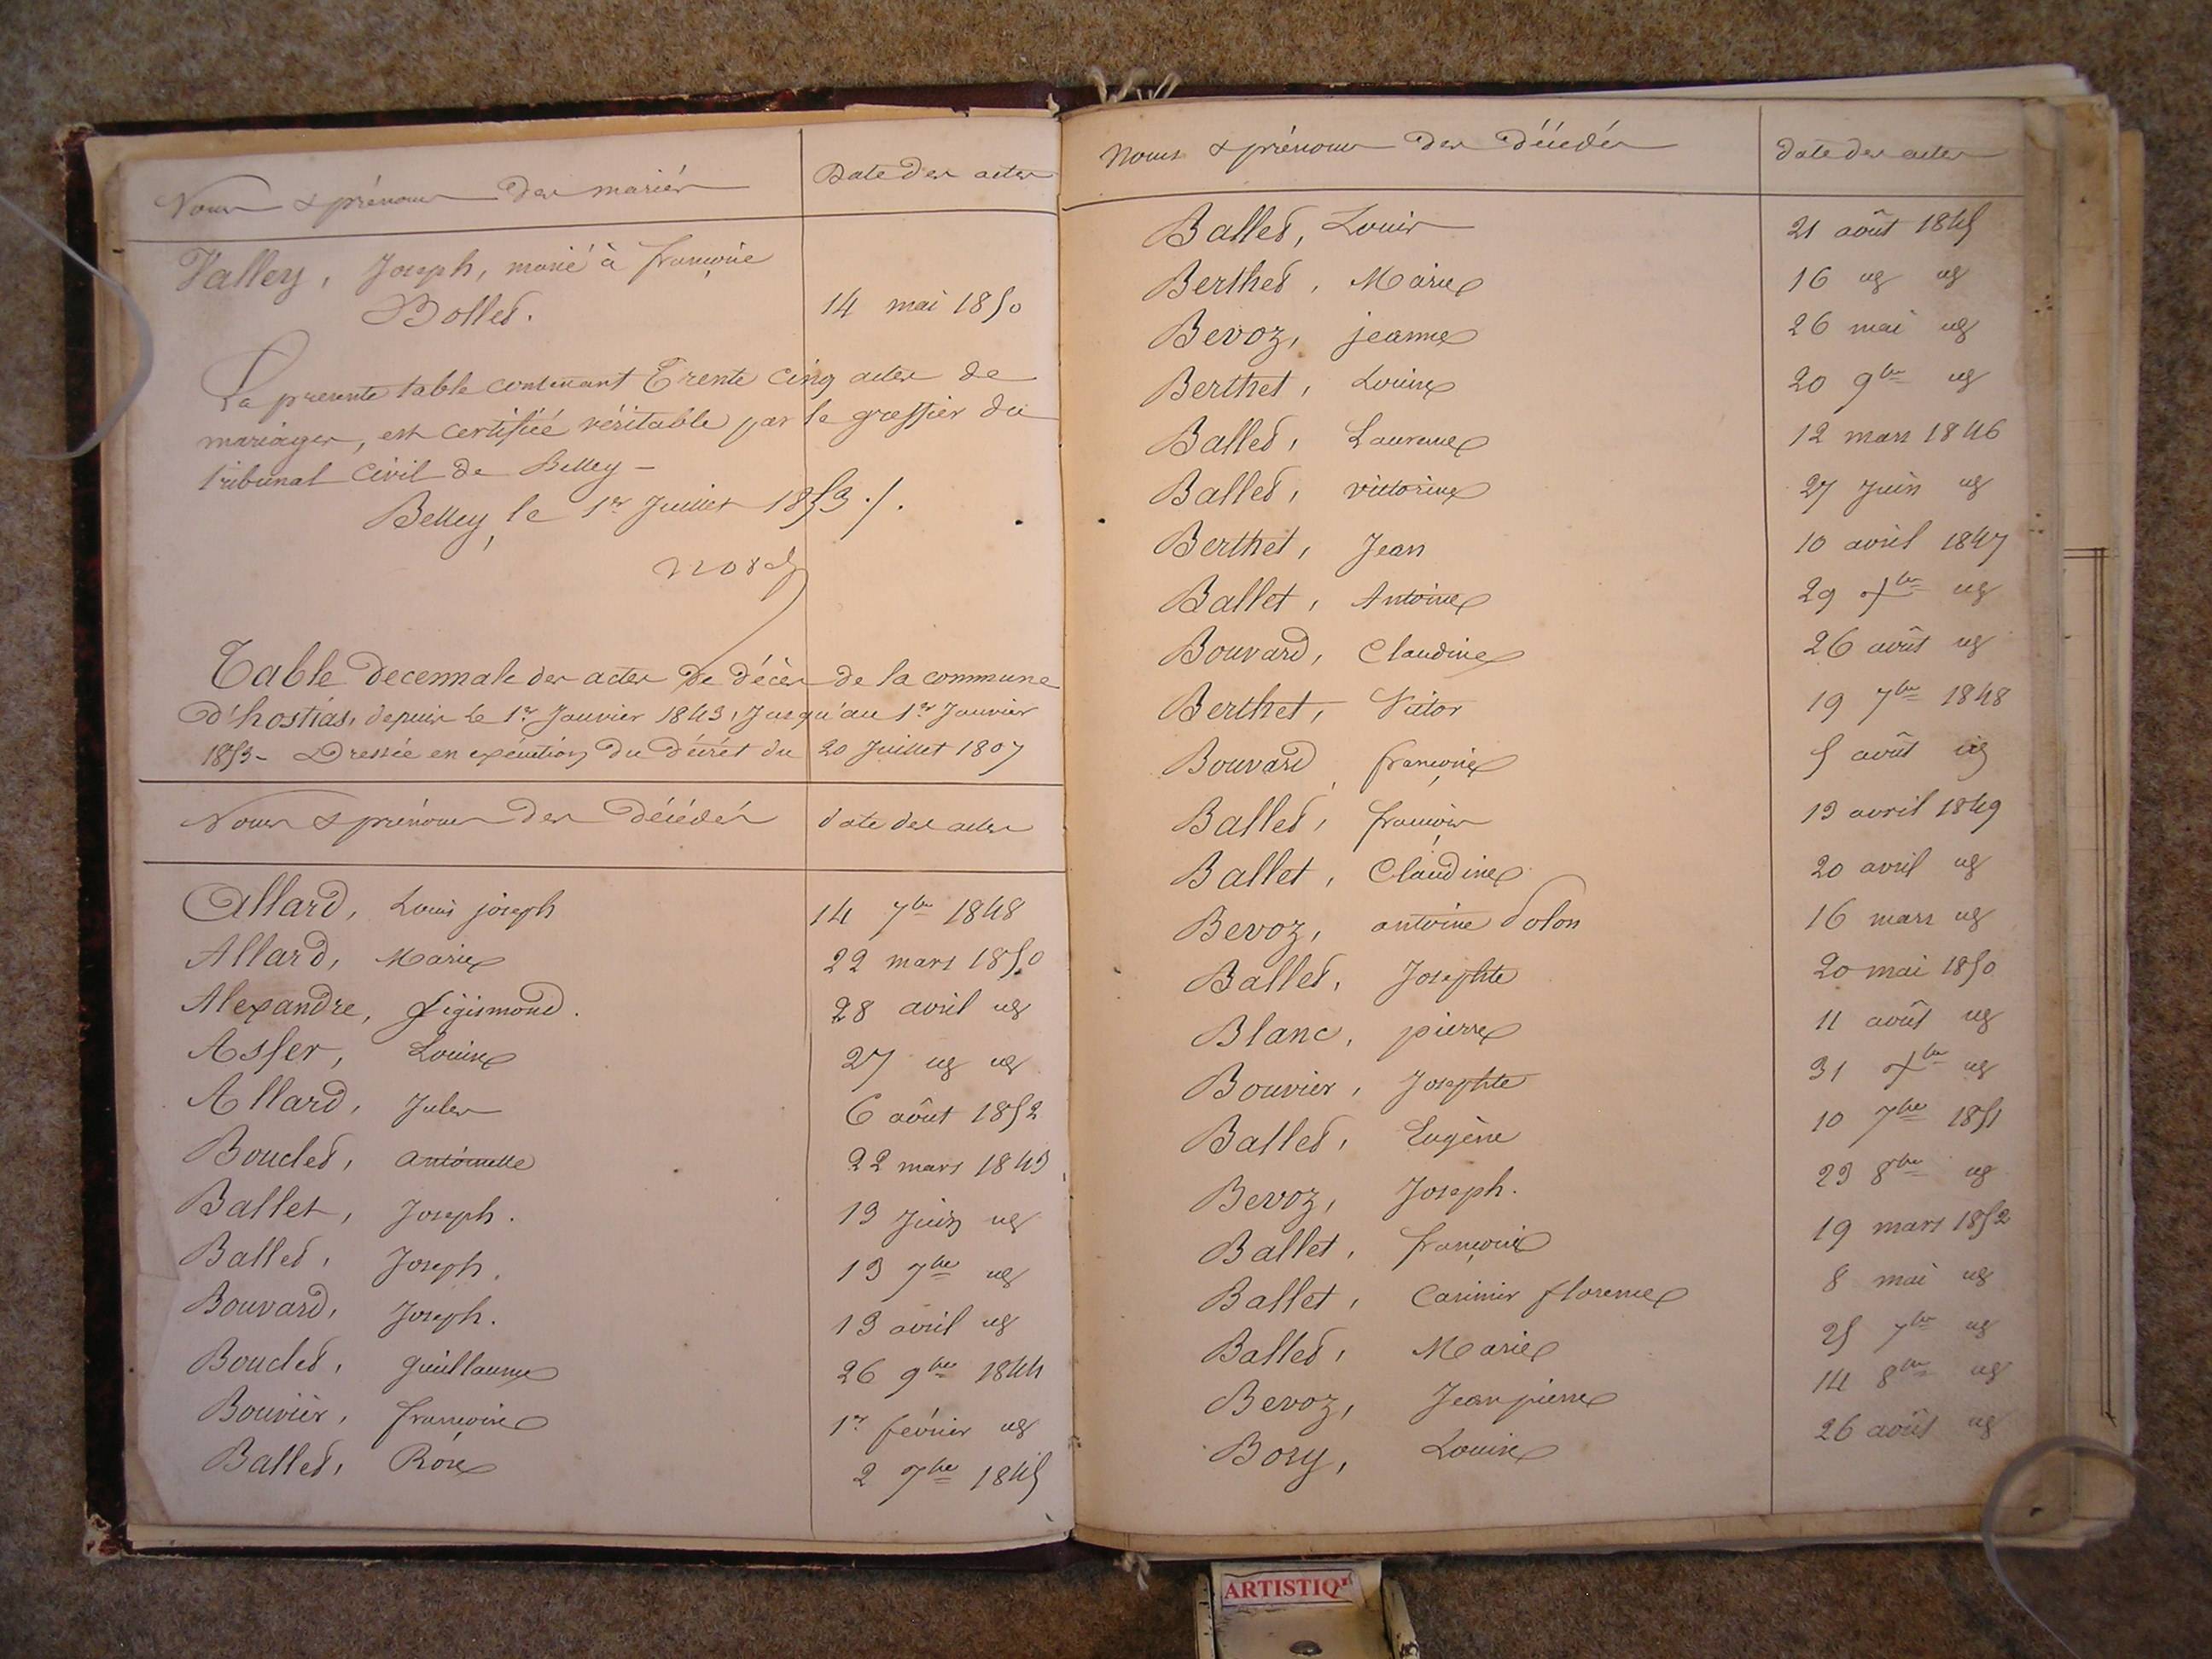 Noms & prénoms des mariés
Date des actes
Valley, Joseph, marié à françoise
Bollet.
14 mai 1850
La presente table contenant Trente cinq actes de
mariages, est certifiée véritable par le greffier du
tribunal Civil de Belley -
Belley, le 1er Juillet 1853 ./.
Table decennale des actes de décès de la commune
d'hostias, depuis le 1er Janvier 1843, Jusqu'au 1er Janvier
1853 - Dressée en exécution du décrèt du 20 Juillet 1807
Noms & prénoms des décédés
date des actes
Allard, Louis joseph 14 7bre 1848
Allard, Marie 22 mars 1850
Alexandre, Sigismond. 28 avril id
Assier, Louise 27 id id
Allard, Jules 6 août 1852
Bouclet, antoinette 22 mars 1843
Ballet, Joseph. 13 Juin id
Ballet, Joseph. 13 7bre id
Bouvard, Joseph. 13 avril id
Bouclet, guillaume 26 9bre 1844
Bouvier, françoise 1er février id
Ballet, Rose 2 7bre 1845
Noms & prénoms des décédés
date des actes
Ballet, Louis 21 août 1845
Berthet, Marie 16 id id
Bevoz, jeanne 26 mai id
Berthet, Louise 20 9bre id
Ballet, Laurence 12 mars 1846
Ballet, victorine 27 Juin id
Berthet, Jean 10 avril 1847
Ballet, Antoine 29 xbre id
Bouvard, Claudine 26 août id
Berthet, Victor 19 7bre 1848
Bouvard, françoise 5 août id
Ballet, françois 13 avril 1849
Ballet, Claudine 20 avril id
Bevoz, antoine Solon 16 mars id
Ballet, Josephte 20 mai 1850
Blanc, pierre 11 août id
Bouvier, Josephte 31 xbre id
Ballet, Eugène 10 7bre 1851
Bevoz, Joseph. 23 8bre id
Ballet, françoise 19 mars 1852
Ballet, Casimir florence 8 mai id
Ballet, Marie 25 7bre id
Bevoz, Jean pierre 14 8bre id
Bory, Louise 26 août id
ARTISTIQ